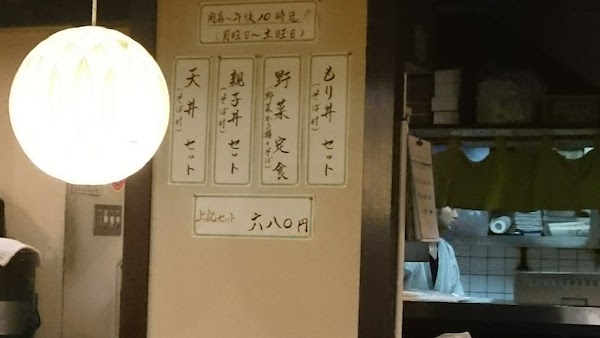 開店〜午後10時迄
(月曜日〜土曜日)
もり丼 セット
(そば付)
野菜 定食
野菜かき揚+そば
親子丼 セット
(そば付)
天丼 セット
(そば付)
上記セット 六八〇円